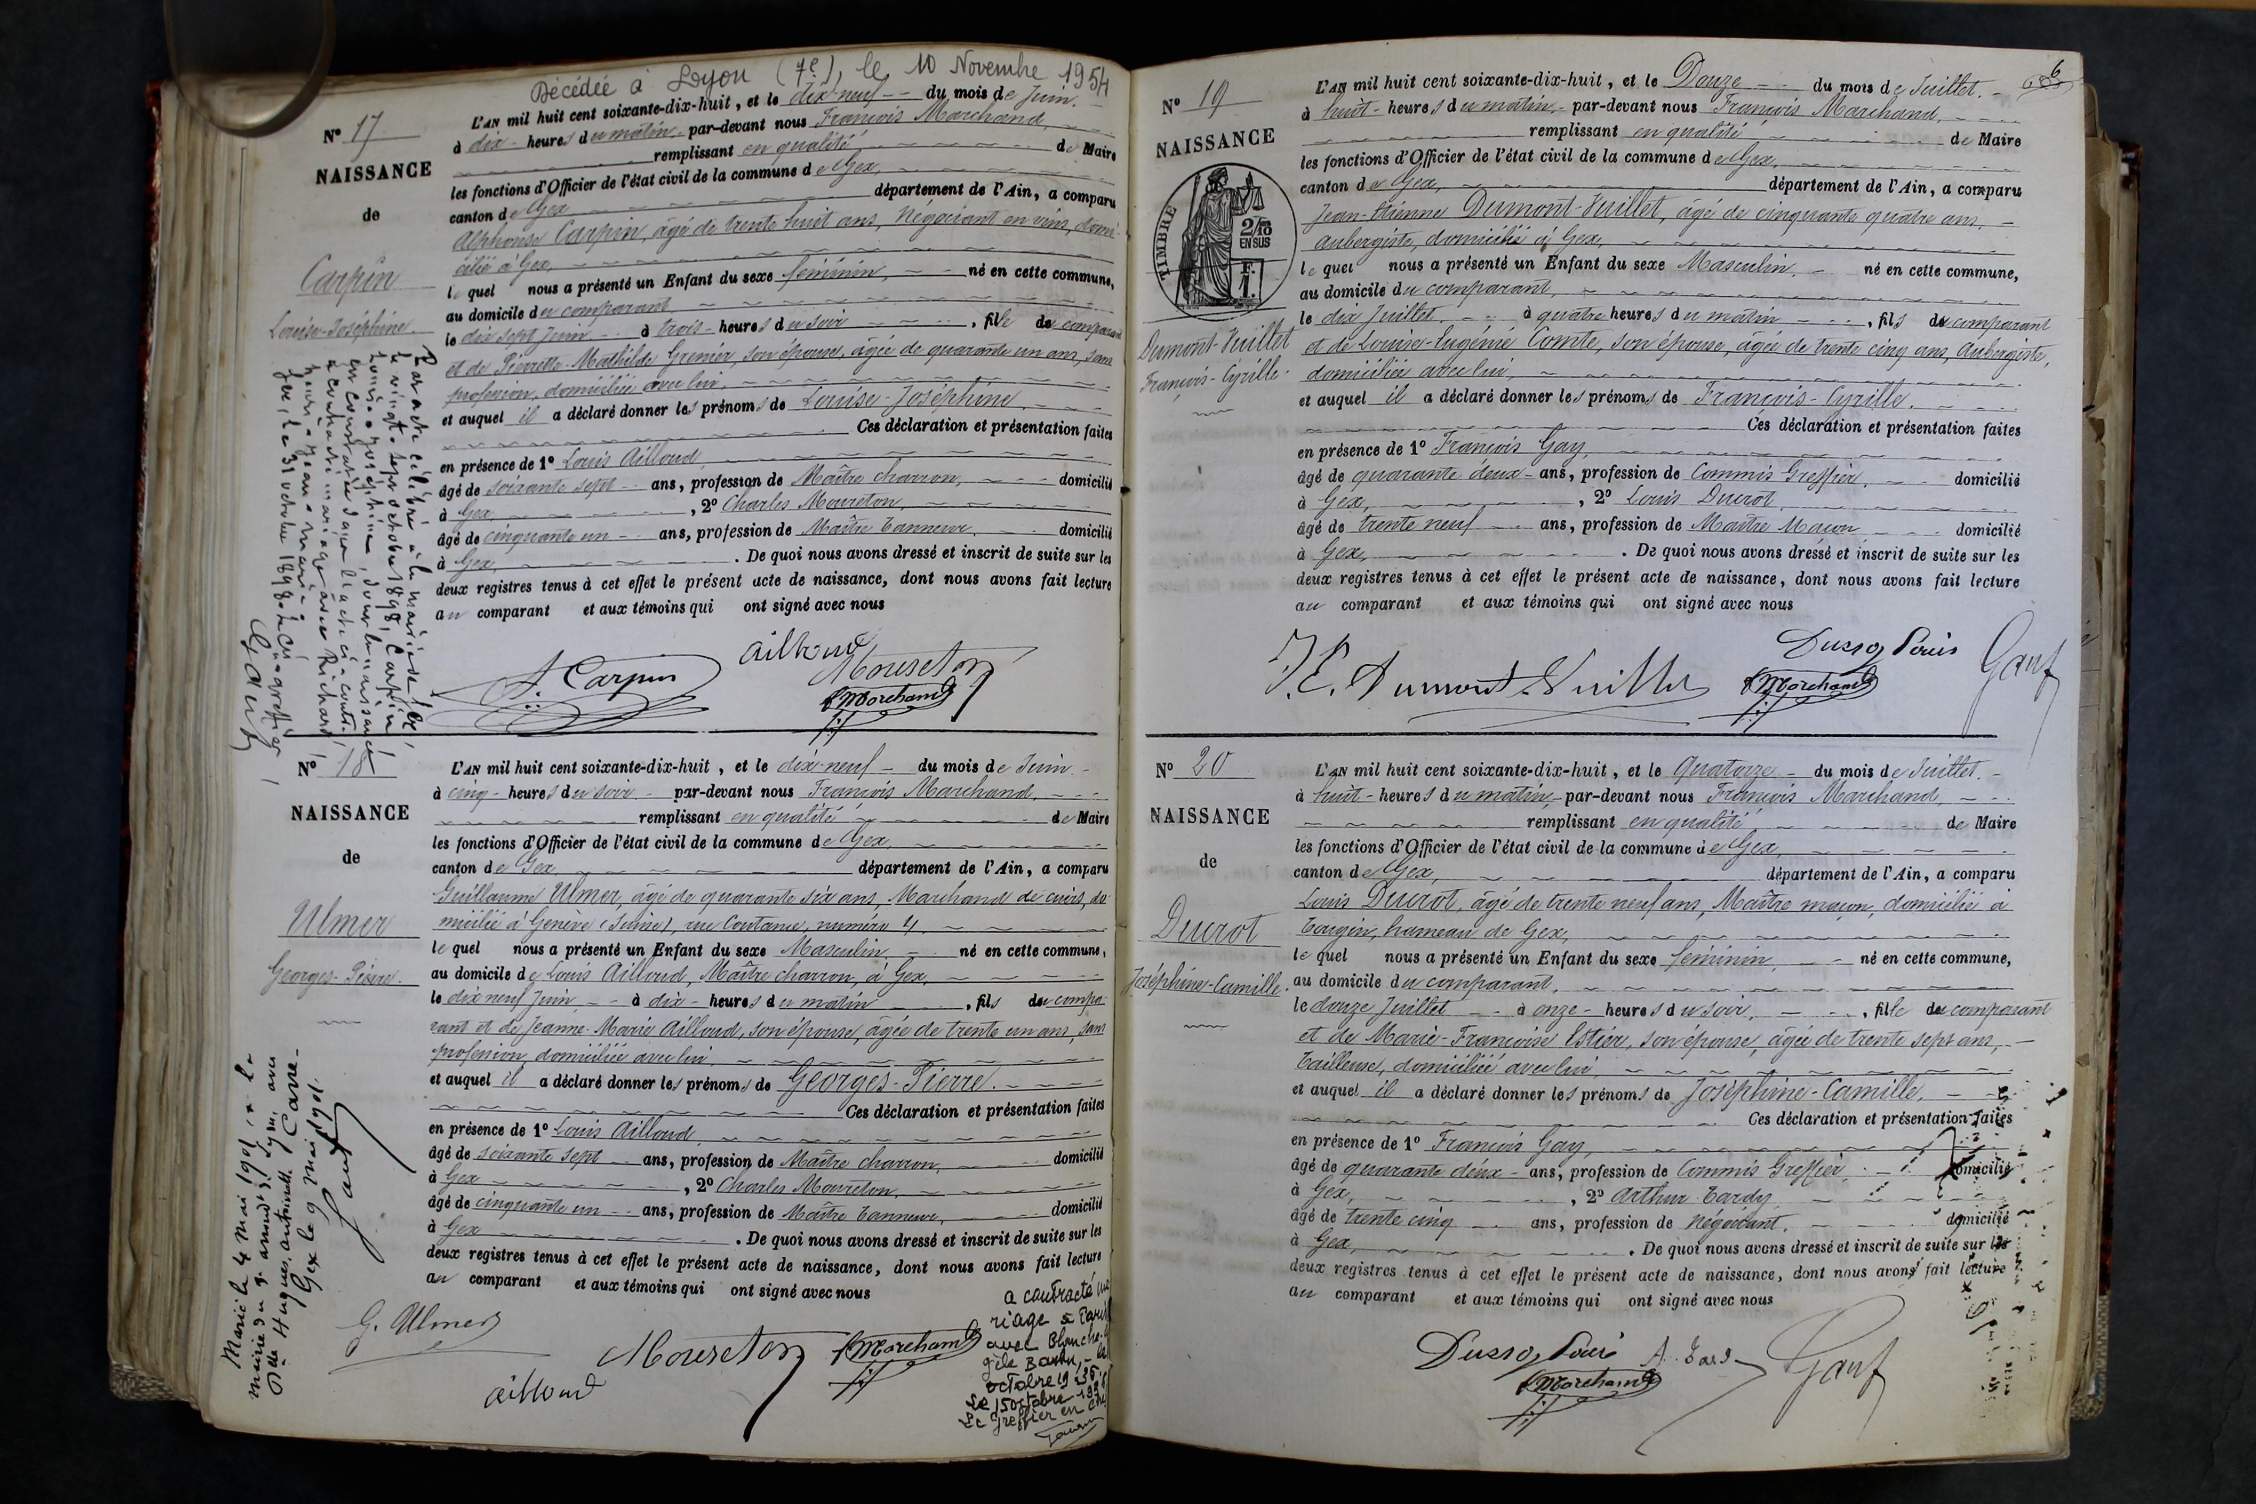 Décédée à Lyon (7e), le 10 Novembre 1954
N° 17
NAISSANCE
de
Carpin
Louise-Joséphine
Par acte célébré à la mairie de Gex,
le vingt-sept octobre 1898, Carpin
Louise-Joséphine, dont la naissance
est constatée dans l'acte ci-contre,
a contracté mariage avec Richard
Gex, le 31 octobre 1898. Le greffier,
L'AN mil huit cent soixante-dix-huit, et le dix-neuf du mois de Juin.
à dix heures du matin par-devant nous François Marchand,
remplissant en qualité de Maire
les fonctions d'Officier de l'état civil de la commune de Gex,
canton de Gex département de l'Ain, a comparu
Alphonse Carpin, âgé de trente huit ans, Négociant en vins, domi-
cilié à Gex,
le quel nous a présenté un Enfant du sexe féminin, né en cette commune,
au domicile du comparant
le dix sept Juin à trois heures du soir, fille du comparant
et de Pierrette-Mathilde Grenier, son épouse, âgée de quarante un ans, sans
profession, domiciliée avec lui,
et auquel il a déclaré donner les prénoms de Louise-Joséphine.
Ces déclaration et présentation faites
en présence de 1° Louis Ailloud
âgé de soixante sept ans, profession de Maître charron, domicilié
à Gex, 2° Charles Moureton,
âgé de cinquante un ans, profession de Maître Tanneur, domicilié
à Gex, . De quoi nous avons dressé et inscrit de suite sur les
deux registres tenus à cet effet le présent acte de naissance, dont nous avons fait lecture
au comparant et aux témoins qui ont signé avec nous
A. Carpin
Ailloud
Moureton
F Marchand
N° 18
NAISSANCE
de
Ulmer
Georges-Pierre.
Marié le 4 mai 1901, à la
mairie du 9e arrondt
Gex le 9 mai 1901.
L'AN mil huit cent soixante-dix-huit, et le dix-neuf du mois de Juin
à cinq heures du soir par-devant nous François Marchand,
remplissant en qualité de Maire
les fonctions d'Officier de l'état civil de la commune de Gex,
canton de Gex département de l'Ain, a comparu
Guillaume Ulmer, âgé de quarante six ans, Marchand de cuirs, do-
micilié à Genève (Suisse), rue Coutance, numéro 4,
le quel nous a présenté un Enfant du sexe Masculin, né en cette commune,
au domicile de Louis Ailloud, Maître charron, à Gex,
le dix neuf Juin à dix heures du matin, fils du compa-
rant et de Jeanne-Marie Ailloud, son épouse, âgée de trente un ans, sans
profession, domiciliée avec lui,
et auquel il a déclaré donner les prénoms de Georges-Pierre.
Ces déclaration et présentation faites
en présence de 1° Louis Ailloud
âgé de soixante sept ans, profession de Maître charron, domicilié
à Gex, 2° Charles Moureton,
âgé de cinquante un ans, profession de Maître Tanneur, domicilié
à Gex . De quoi nous avons dressé et inscrit de suite sur les
deux registres tenus à cet effet le présent acte de naissance, dont nous avons fait lecture
au comparant et aux témoins qui ont signé avec nous
G. Ulmer
Ailloud
Moureton
F Marchand
a contracté ma
riage à Paris
avec Blanche
octobre
Le 15 octobre
Le greffier en chef
6
N° 19
NAISSANCE
TIMBRE
2/10
EN SUS
F.
1.
Dumont-Vuillet
François-Cyrille.
L'AN mil huit cent soixante-dix-huit, et le Douze du mois de Juillet.
à huit heures du matin par-devant nous François Marchand,
remplissant en qualité de Maire
les fonctions d'Officier de l'état civil de la commune de Gex,
canton de Gex, département de l'Ain, a comparu
Jean-Etienne Dumont-Vuillet, âgé de cinquante quatre ans,
aubergiste, domicilié à Gex,
le quel nous a présenté un Enfant du sexe Masculin, né en cette commune,
au domicile du comparant,
le dix Juillet à quatre heures du matin, fils du comparant
et de Louise-Eugénie Comte, son épouse, âgée de trente cinq ans, Aubergiste,
domiciliée avec lui,
et auquel il a déclaré donner les prénoms de François-Cyrille.
Ces déclaration et présentation faites
en présence de 1° François Gay,
âgé de quarante deux ans, profession de Commis Greffier, domicilié
à Gex, 2° Louis Ducrot,
âgé de trente neuf ans, profession de Maître Maçon domicilié
à Gex, . De quoi nous avons dressé et inscrit de suite sur les
deux registres tenus à cet effet le présent acte de naissance, dont nous avons fait lecture
au comparant et aux témoins qui ont signé avec nous
J. E. Dumont-Vuillet
F Marchand
N° 20
NAISSANCE
de
Ducrot
Joséphine-Camille.
L'AN mil huit cent soixante-dix-huit, et le Quatorze du mois de Juillet.
à huit heures du matin par-devant nous François Marchand,
remplissant en qualité de Maire
les fonctions d'Officier de l'état civil de la commune de Gex,
canton de Gex, département de l'Ain, a comparu
Louis Ducrot, âgé de trente neuf ans, Maître maçon, domicilié à
Tougin, hameau de Gex,
le quel nous a présenté un Enfant du sexe féminin, né en cette commune,
au domicile du comparant,
le douze Juillet à onze heures du soir, fille du comparant
et de Marie-Françoise Estier, son épouse, âgée de trente sept ans,
Tailleuse, domiciliée avec lui,
et auquel il a déclaré donner les prénoms de Joséphine-Camille.
Ces déclaration et présentation faites
en présence de 1° François Gay,
âgé de quarante deux ans, profession de Commis Greffier, domicilié
à Gex, 2° Arthur Tardy,
âgé de trente cinq ans, profession de Négociant, domicilié
à Gex, . De quoi nous avons dressé et inscrit de suite sur les
deux registres tenus à cet effet le présent acte de naissance, dont nous avons fait lecture
au comparant et aux témoins qui ont signé avec nous
F Marchand